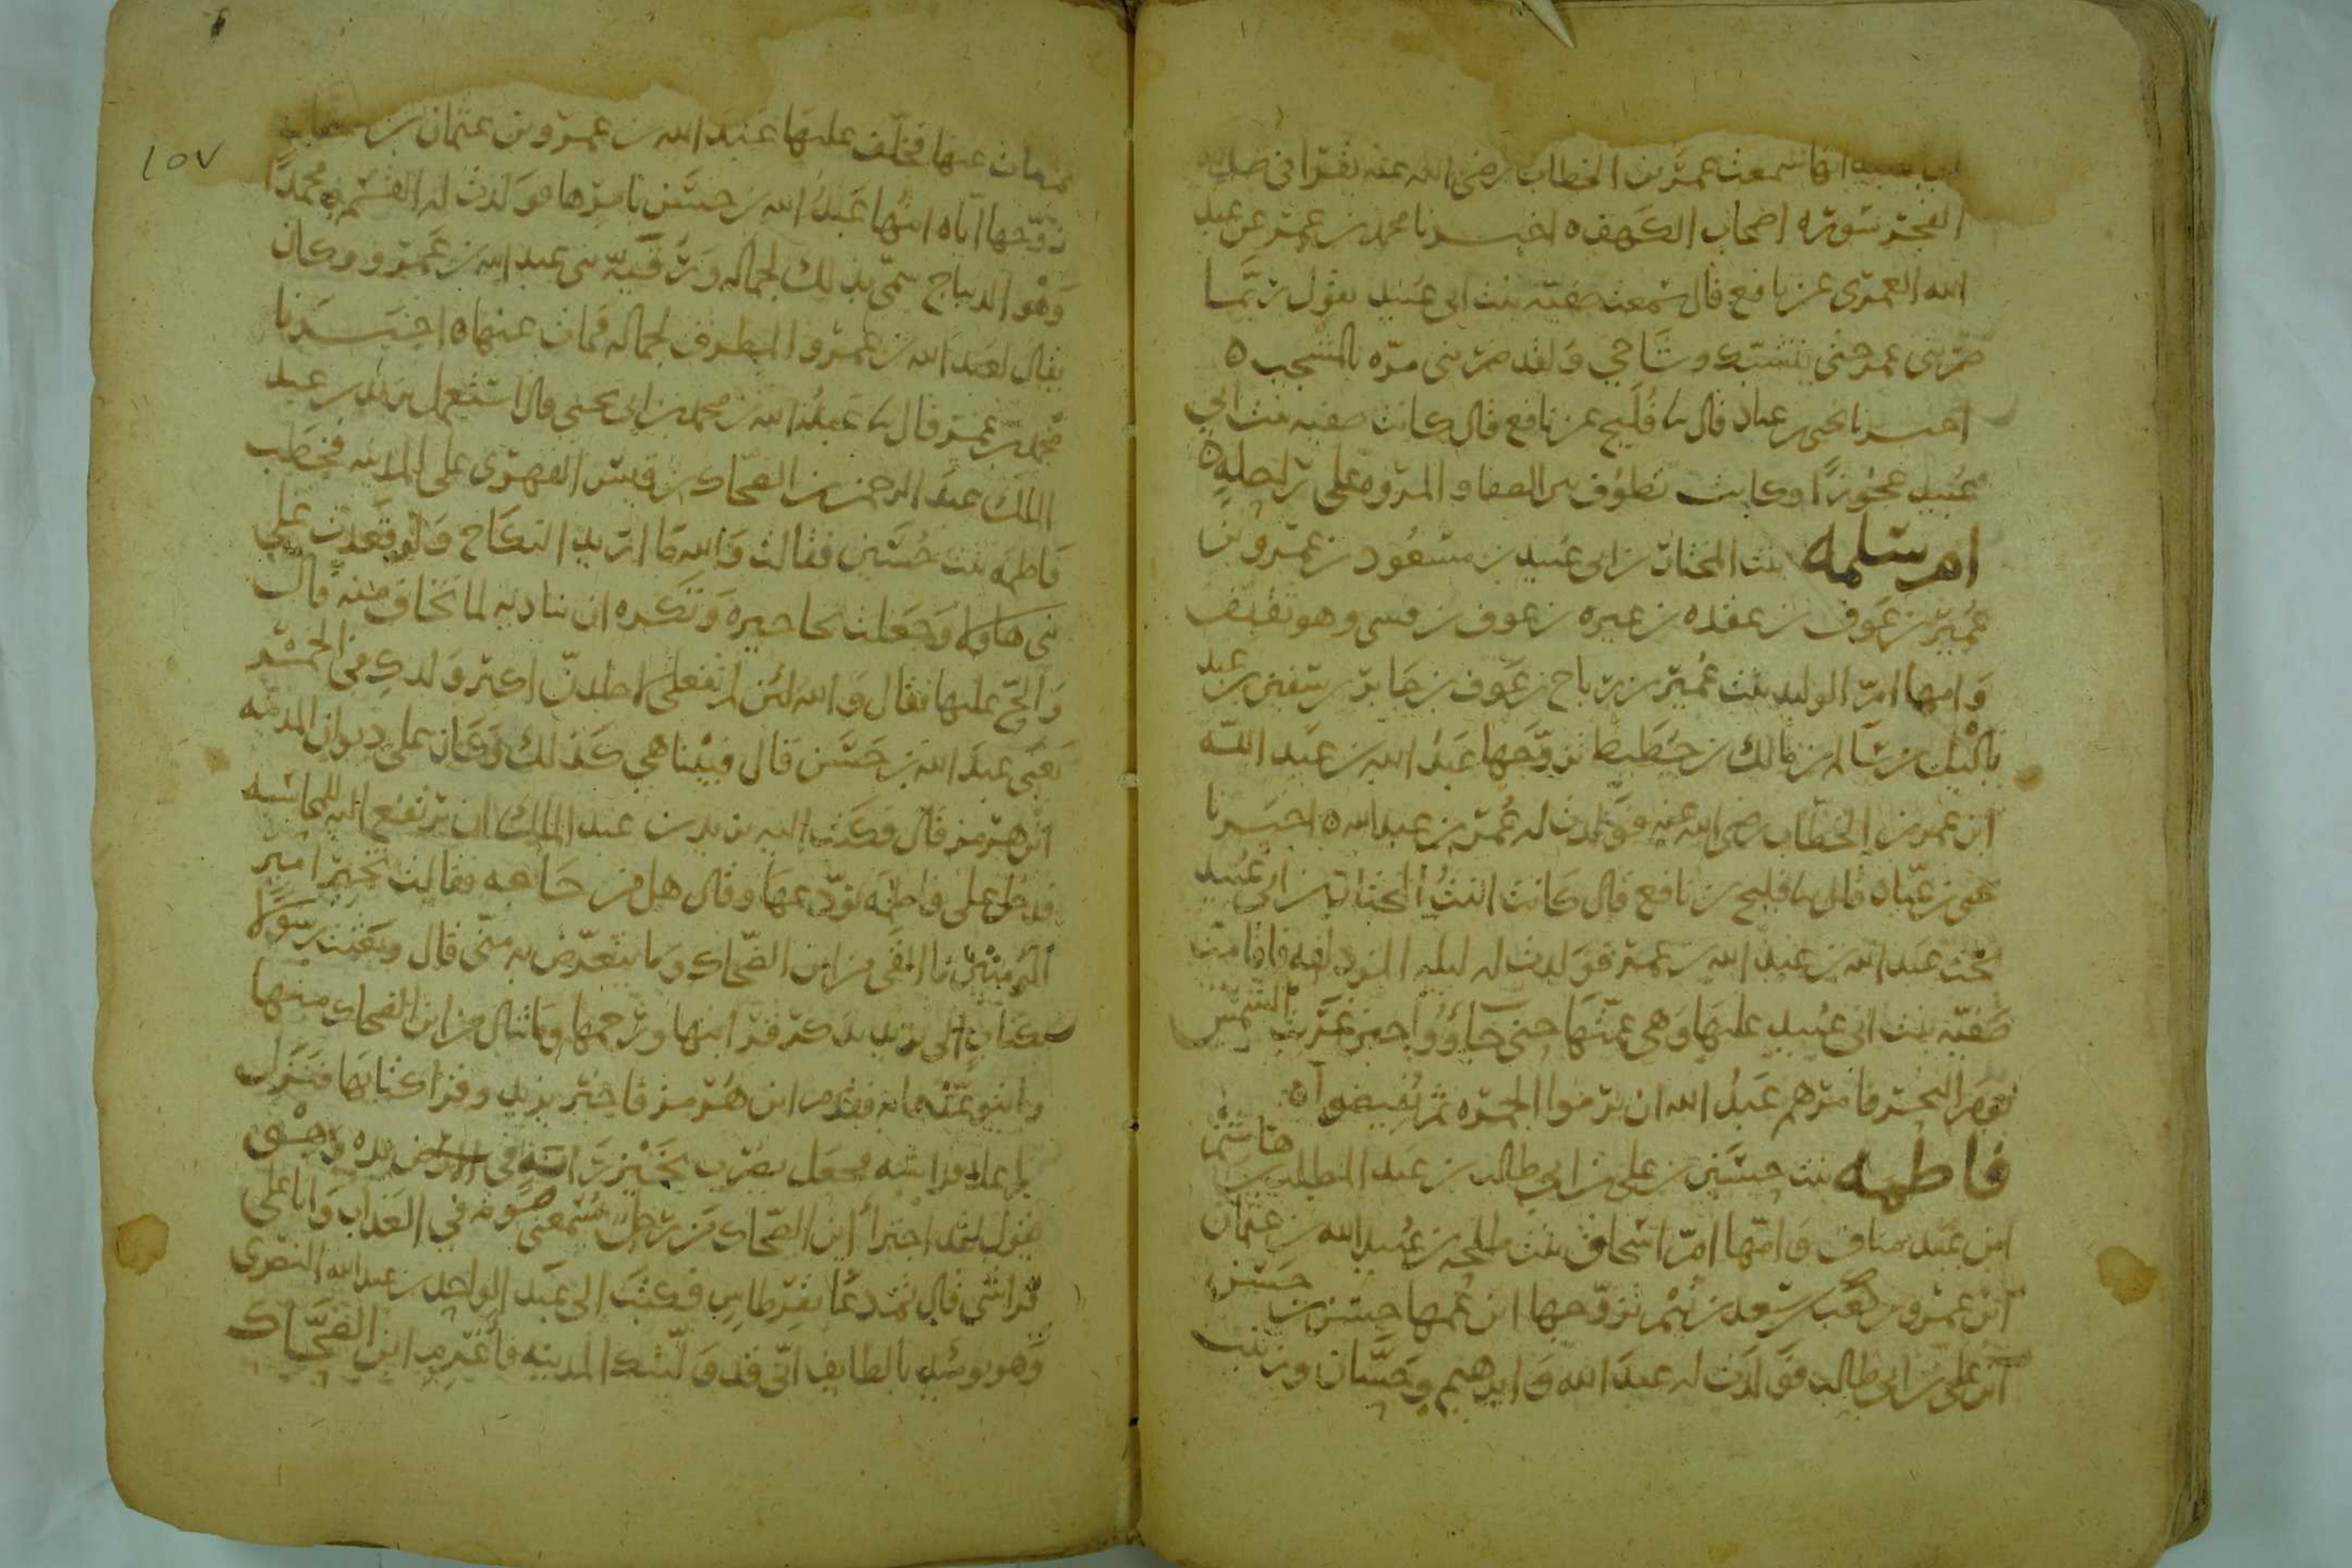 انها سمعت عمر بن الخطاب رضي الله عنه يقرا في صلاه
الفجر سوره اصحاب الكهف ه اخبرنا محمد بن عمر عن عبد
الله العمرى عن نافع قال سمعت صفيه بنت ابى عبيد يقول ربما
ضربنى عمر حتى يتشتك وشاحي ولقد ضربنى مره بالمشجب ه
اخبرنا يحيى بن عباد قال نا فليح عن نافع قال كانت صفيه بنت ابي
عبيد عجوزا وكانت تطوف بين الصفا والمروه على راحله ه
ام سلمه بنت المختار بن ابى عبيد بن مسعود بن عمرو بن
عمير بن عوف بن عقده بن غيره بن عوف بن قسى وهو ثقيف
وامها ام الوليد بنت عمير بن رباح بن عوف بن جابر بن سفين بن عبد
ياليل بن سالم بن مالك بن حطيط تزوجها عبد الله بن عبد الله
ابن عمر بن الخطاب رضى الله عنه فولدت له عمر بن عبد الله ه اخبرنا
يحيى بن عباد قال نا فليح بن نافع قال كانت ابنت المختار بن ابى عبيد
تحت عبد الله بن عبد الله بن عمر فولدت له ليله المزدلفه فاقامت
صفيه بنت ابى عبيد عليها وهي عمتها حتى جاؤوا حين غربت الشمس
يوم النحر فامرهم عبد الله ان يرموا الجمره ثم يفيضوا ه
فاطمه بنت حسين بن على بن ابي طالب بن عبد المطلب بن هاشم
ابن عبد مناف وامها ام اسحاق بنت طلحه بن عبيد الله بن عثمان
ابن عمرو بن كعب بن سعد بن تيم تزوجها ابن عمها حسن بن حسن
ابن على بن ابى طالب فولدت له عبد الله وابرهيم وحسنا وزينب
ثم مات عنها فخلف عليها عبد الله بن عمرو بن عثمان بن عفان
زوجها اياه ابنها عبد الله بن حسن بامرها فولدت له القسم ومحمدا
وهو الديباج سمى بذلك لجماله ورقيه بنى عبد الله بن عمرو وكان
يقال لعبد الله بن عمرو المطرف لجماله فمات عنها ه اخبرنا
محمد بن عمر قال نا عبد الله بن محمد بن ابى يحيى قال استعمل يزيد بن عبد
الملك عبد الرحمن بن الضحاك بن قيس الفهرى على المدينه فخطب
فاطمه بنت حسين فقالت والله ما اريد النكاح ولقد قعدت على
بني هاولا وجعلت تحاجزه وتكره ان تناديه لما تخاف منه قال
والح عليها فقال والله لئن لم تفعلى لاجلدن اكبر ولدك في الخمر
يعنى عبد الله بن حسن قال فبينا هي كذلك وكان على ديوان المدينه
ابن هرمز قال فكتب اليه يزيد بن عبد الملك ان يرتفع اليه للمحاسبه
فدخل على فاطمه يودعها وقال هل من حاجه فقالت تخبر امير
المومنين ما القى من ابن الضحاك وما يتعرض به منى قال وبعثت رسولا
بكتاب الى يزيد يذكر قرابتها ورحمها وما ينال من ابن الضحاك منها
وما يتوعدها به فقدم ابن هرمز فاخبر يزيد وقرا كتابها فنزل
من اعلا فراشه فجعل يضرب بخيزرانته في الارض بيده وهو
يقول لقد اجترأ ابن الضحاك من رجل يسمعنى صوته في العذاب وانا على
فراشي قال ثم دعا بقرطاس فكتب الى عبد الواحد بن عبد الله النصرى
وهو يومئذ بالطايف انى قد وليتك المدينه فاغرم ابن الضحاك
١٥٧